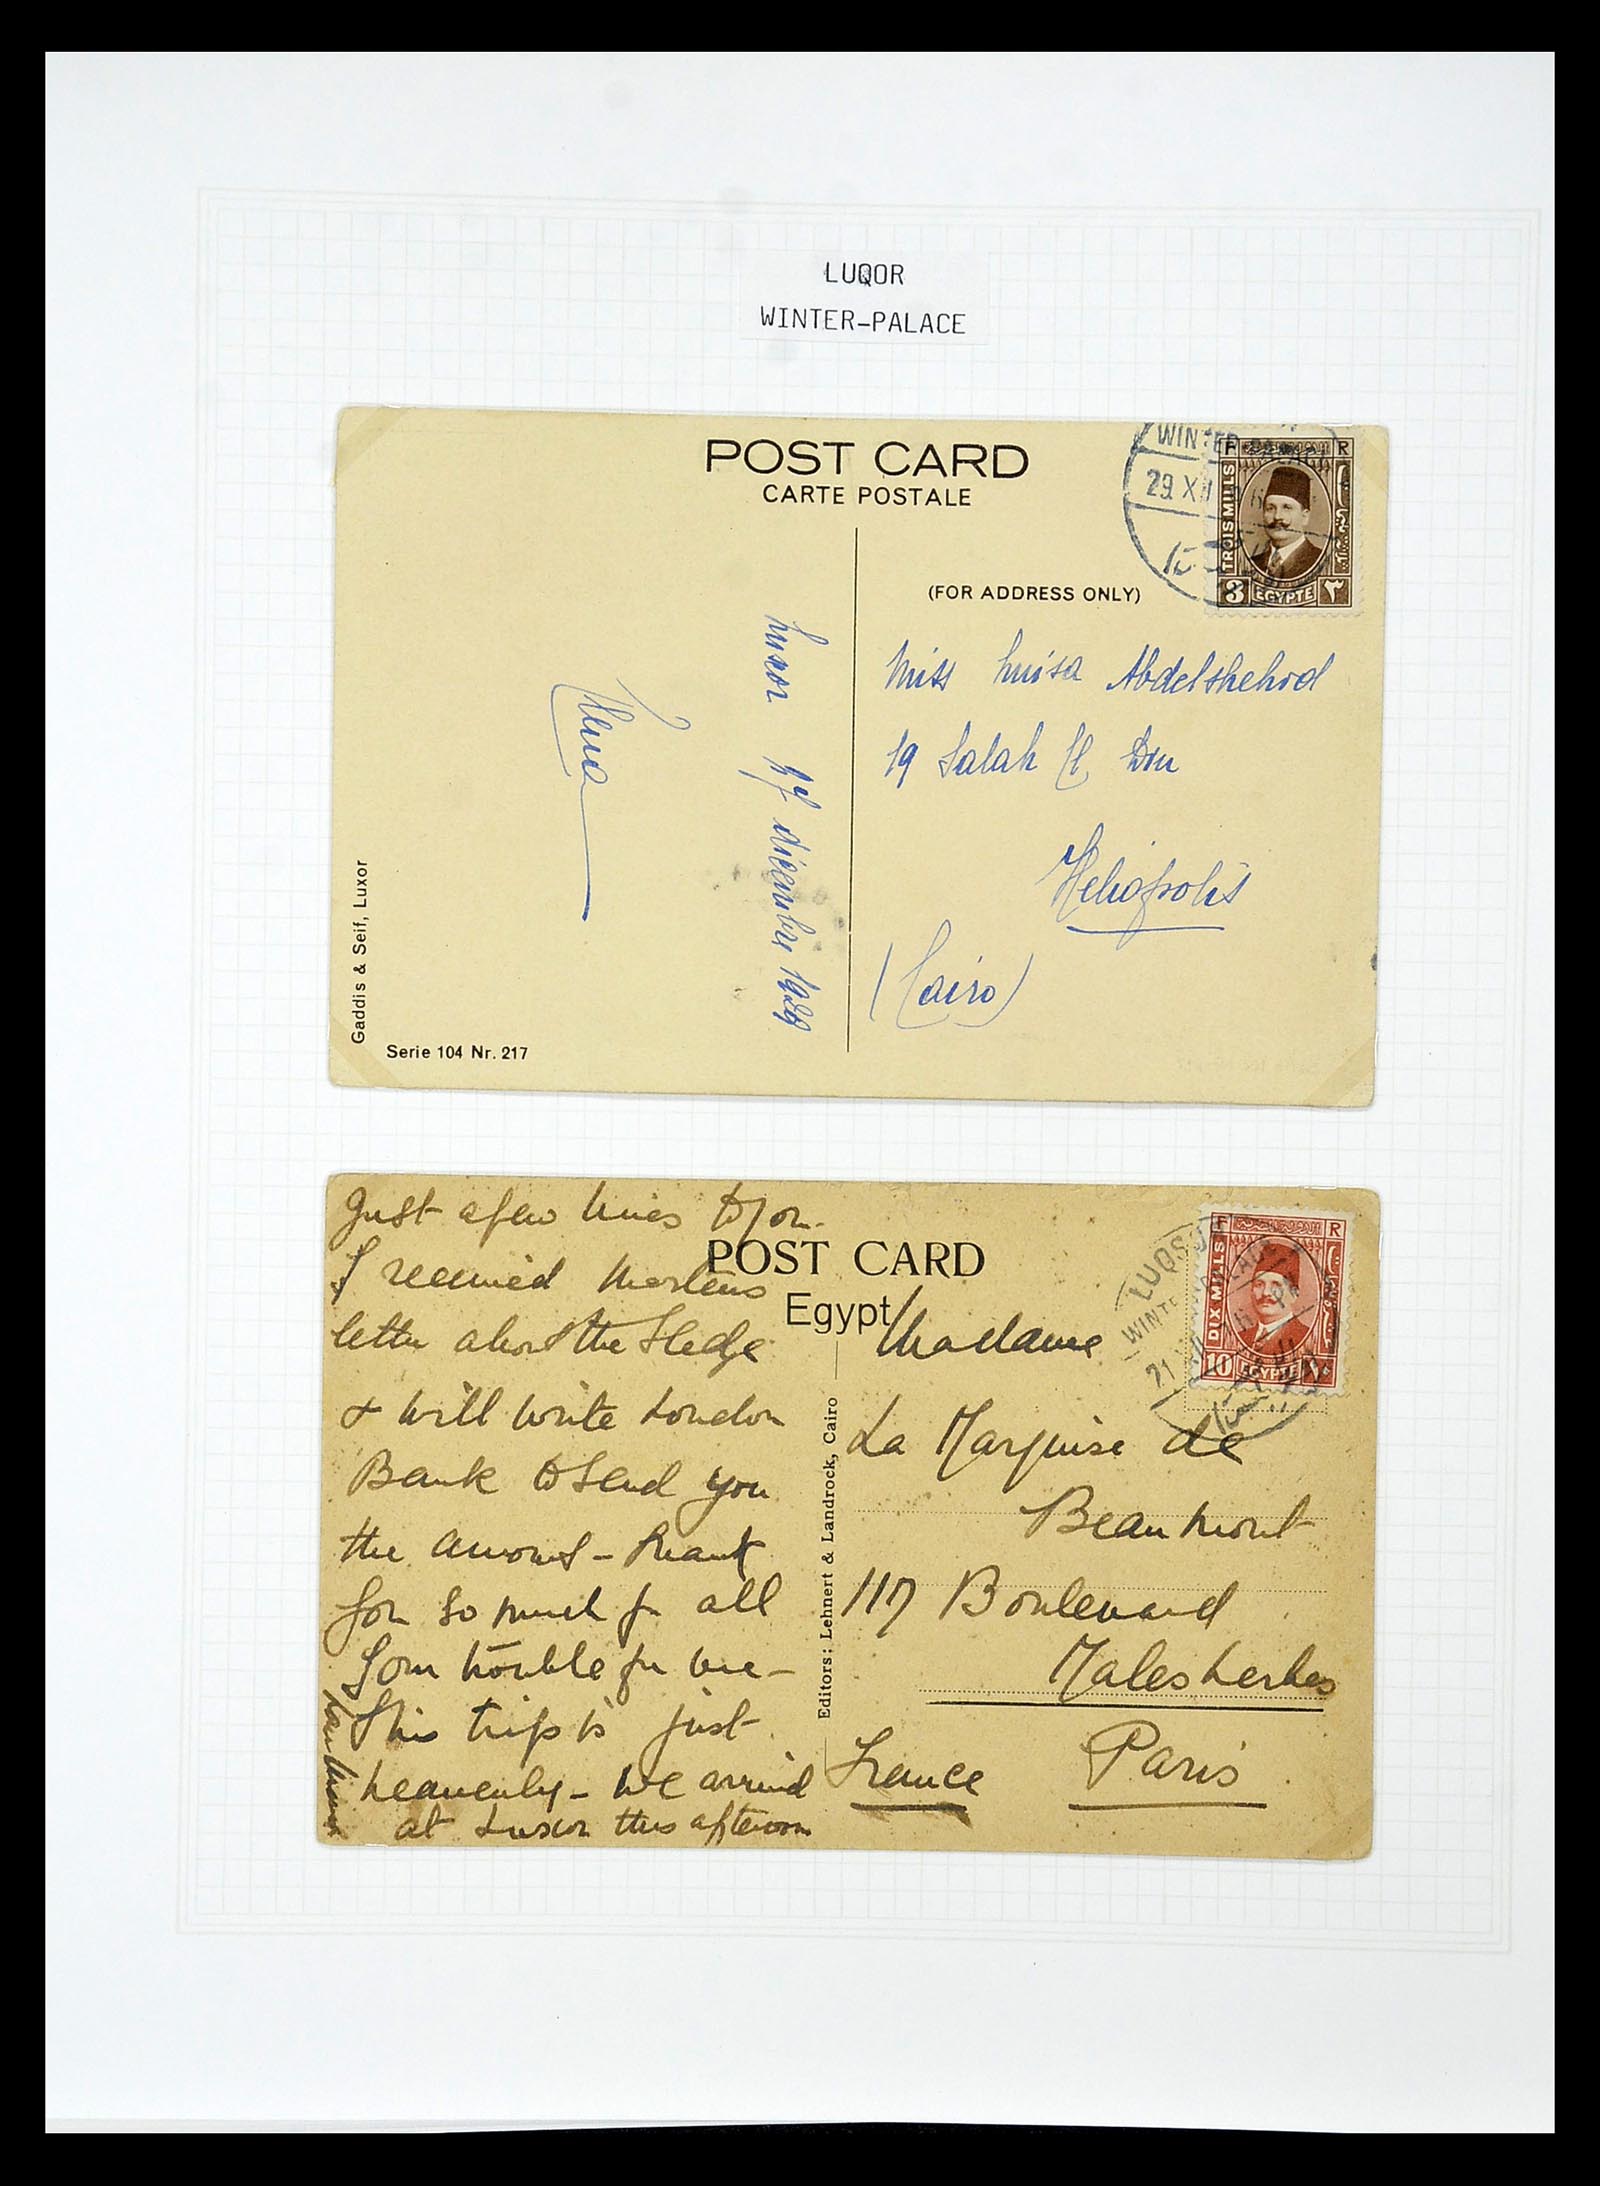 LUQOR
WINTER-PALACE
POST CARD
CARTE POSTALE
WINTER PALACE
29 XII
F R
TROIS MILLS
3 EGYPTE ٣
(FOR ADDRESS ONLY)
Miss Luisa
19 Salah El Din
Heliopolis
(Cairo)
Luxor décembre 1929
Gaddis & Seif, Luxor
Serie 104 Nr. 217
Just a few lines to you.
I received
letter about the
& will write London
Bank to send you
the amount - Thank
you so much for all
your trouble for me -
This trip is just
heavenly - we arrived
at Luxor this afternoon
POST CARD
Egypt
LUQSOR
WINTER PALACE
21
F R
DIX MILLS
10 EGYPTE ١٠
Madame
La Marquise de
Beaumont
117 Boulevard
Malesherbes
France Paris
Editors: Lehnert & Landrock, Cairo